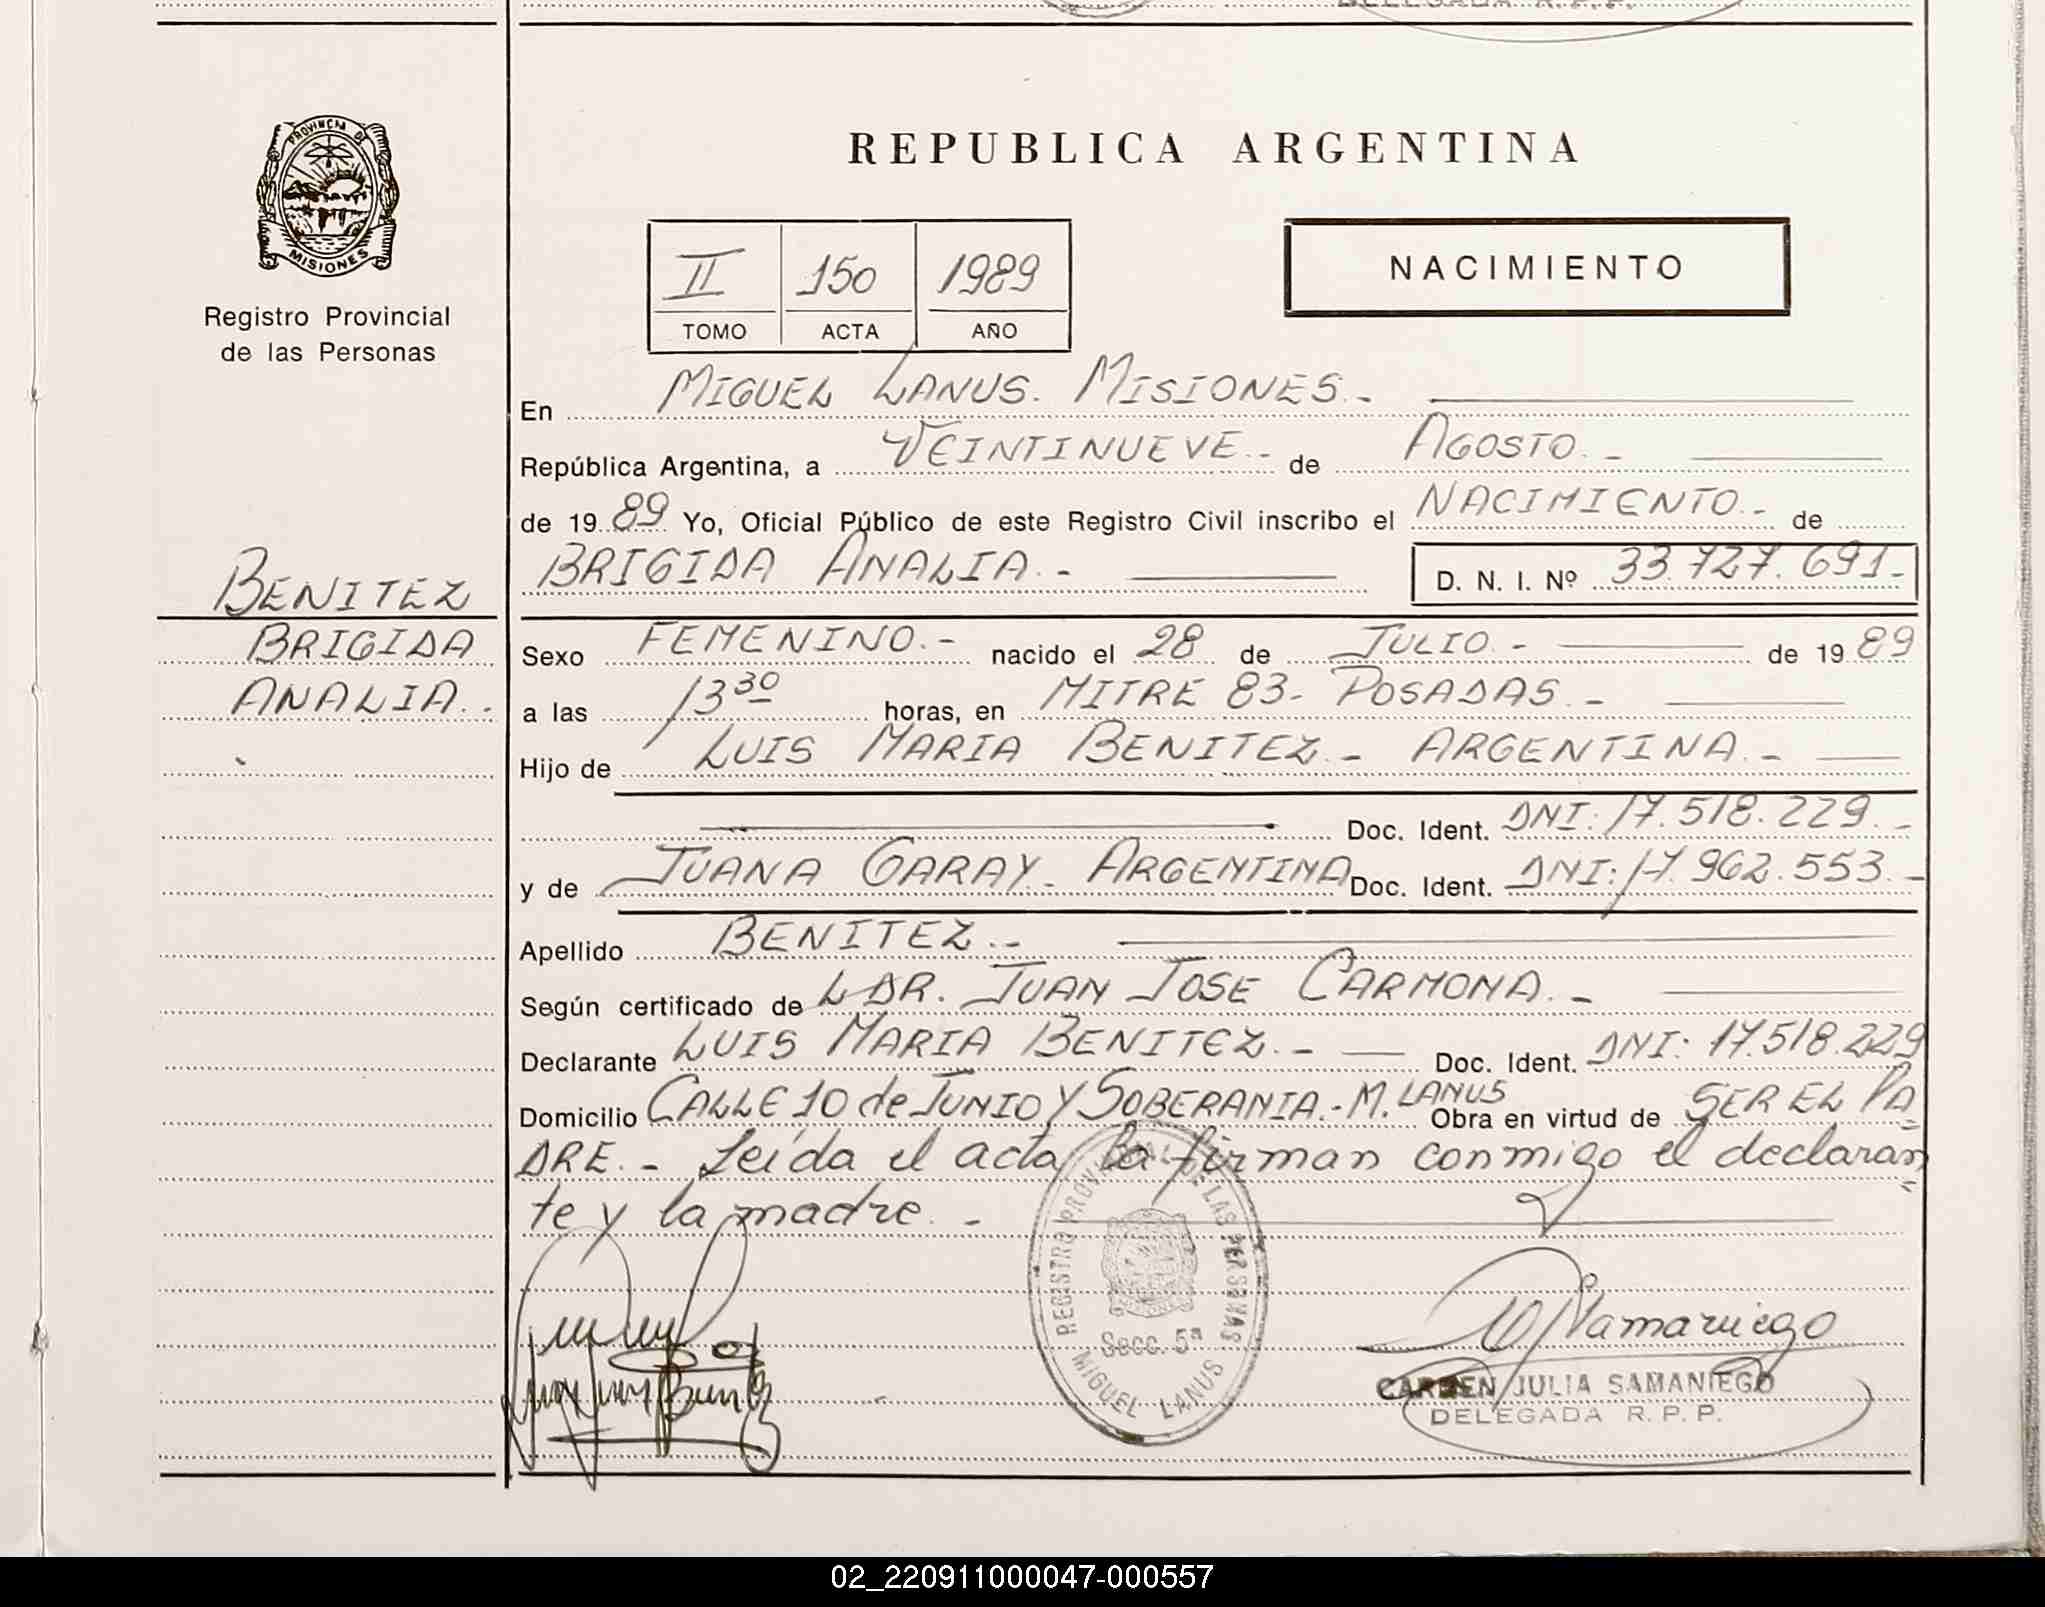 DELEGADA R.P.P.
PROVINCIA DE
MISIONES
Registro Provincial
de las Personas
REPUBLICA ARGENTINA
II 150 1989
TOMO ACTA AÑO
NACIMIENTO
En MIGUEL LANUS. MISIONES.-
República Argentina, a VEINTINUEVE.- de AGOSTO.-
de 1989 Yo, Oficial Público de este Registro Civil inscribo el NACIMIENTO.- de
BRIGIDA ANALIA.- D. N. I. Nº 33.727.691.-
BENITEZ
BRIGIDA
ANALIA..
Sexo FEMENINO.- nacido el 28 de JULIO.- de 1989
a las 13 30 horas, en MITRE 83- POSADAS.-
Hijo de LUIS MARIA BENITEZ.- ARGENTINA.-
Doc. Ident. DNI: 17.518.229.-
y de JUANA GARAY- ARGENTINA Doc. Ident. DNI: 17.962.553.-
Apellido BENITEZ.-
Según certificado de L DR. JUAN JOSE CARMONA.-
Declarante LUIS MARIA BENITEZ.- Doc. Ident. DNI: 17.518.229
Domicilio CALLE 10 de JUNIO Y SOBERANIA.-M. LANUS Obra en virtud de SER EL PA=
DRE.- Leída el acta la firman conmigo el declaran=
te y la madre.-
REGISTRO PROVINCIAL DE LAS PERSONAS
Secc. 5ª
MIGUEL LANUS
Samaniego
CARMEN JULIA SAMANIEGO
DELEGADA R.P.P.
02_220911000047-000557